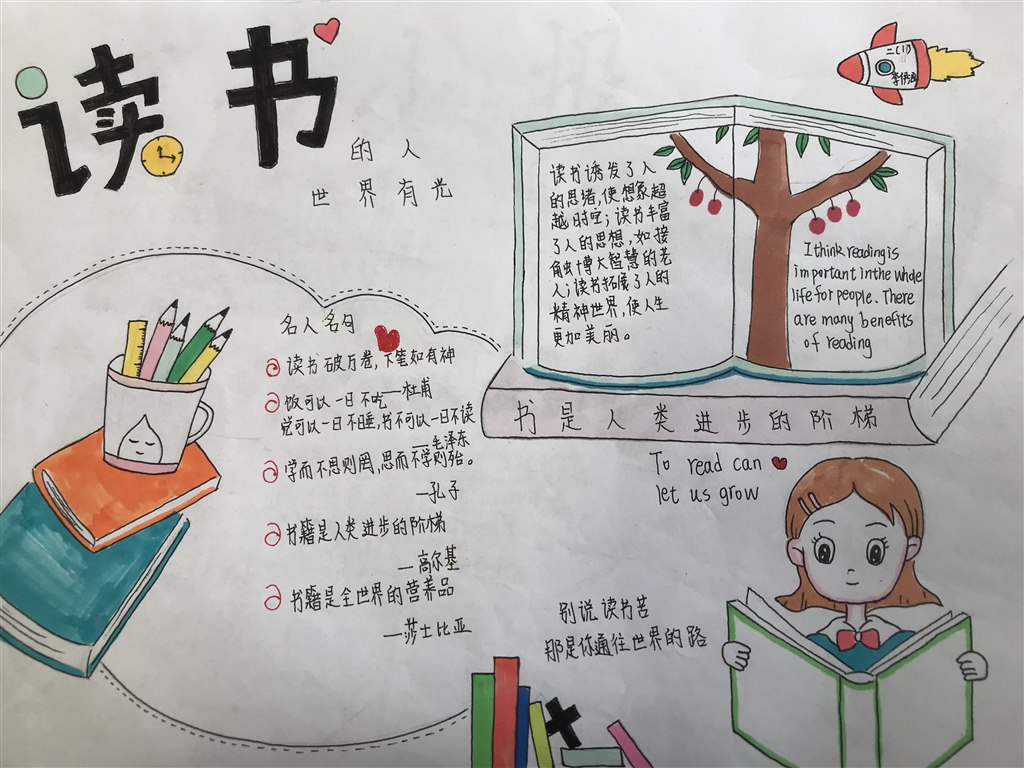 读书
的人
世界有光
二(1)
读书诱发了人
的思绪,使想象超
越时空；读书丰富
了人的思想,如接
触博大智慧的老
人;读书拓展了人的
精神世界,使人生
更加美丽。
I think reading is
important in the whole
life for people. There
are many benefits
of reading
书是人类进步的阶梯
名人名句
读书破万卷,下笔如有神
——杜甫
饭可以一日不吃
觉可以一日不睡,书不可以一日不读
——毛泽东
学而不思则罔,思而不学则殆。
——孔子
书籍是人类进步的阶梯
——高尔基
书籍是全世界的营养品
——莎士比亚
To read can
let us grow
别说读书苦
那是你通往世界的路